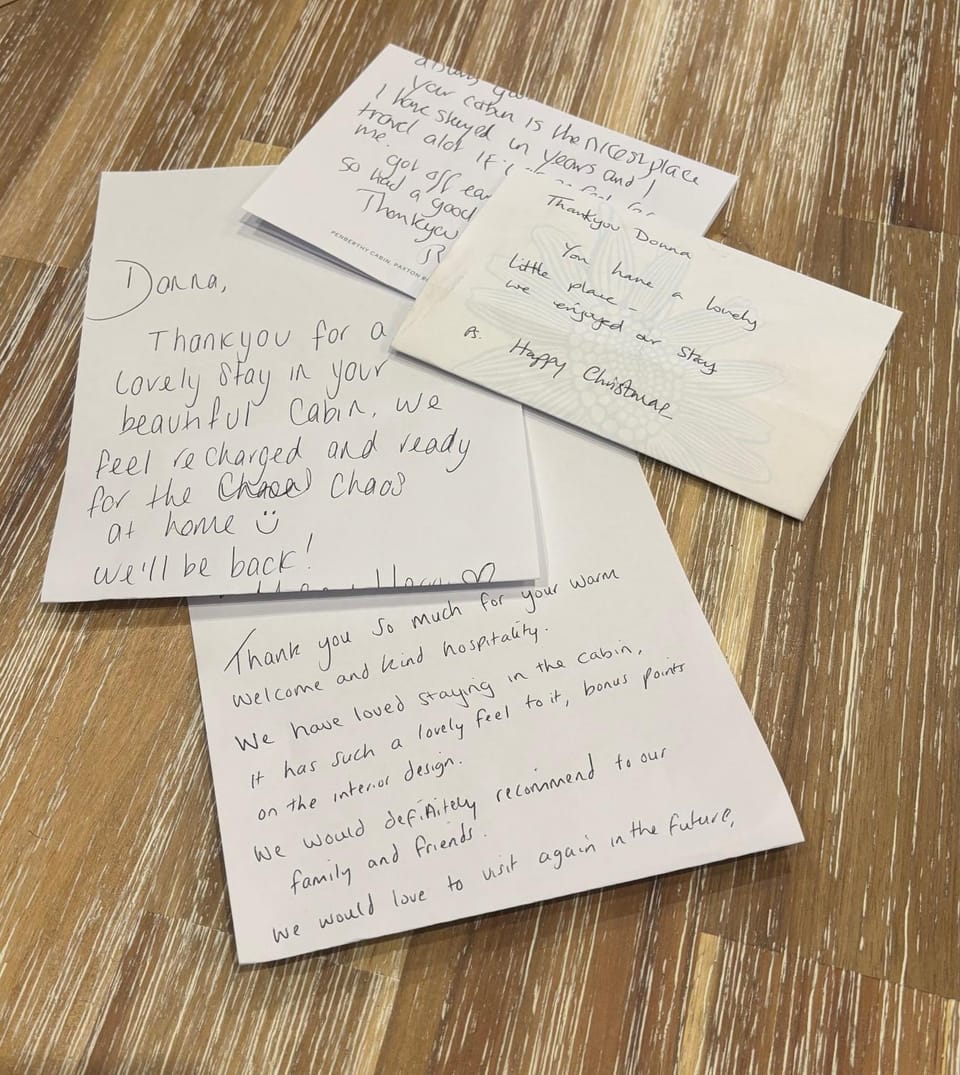 your cabin is the nicest place
I have stayed in years and I
travel alot
me.
got off
so had a good
Thankyou
PENBERTHY CABIN, PAXTON
Thankyou Donna
You have a lovely
little place -
we enjoyed our stay
Ps. Happy Christmas
Donna,
Thankyou for a
lovely stay in your
beautiful cabin. We
feel recharged and ready
for the chaos
at home ☺
we'll be back!
♡
Thank you so much for your warm
welcome and kind hospitality.
We have loved staying in the cabin,
it has such a lovely feel to it, bonus points
on the interior design.
We would definitely recommend to our
family and friends.
We would love to visit again in the future,